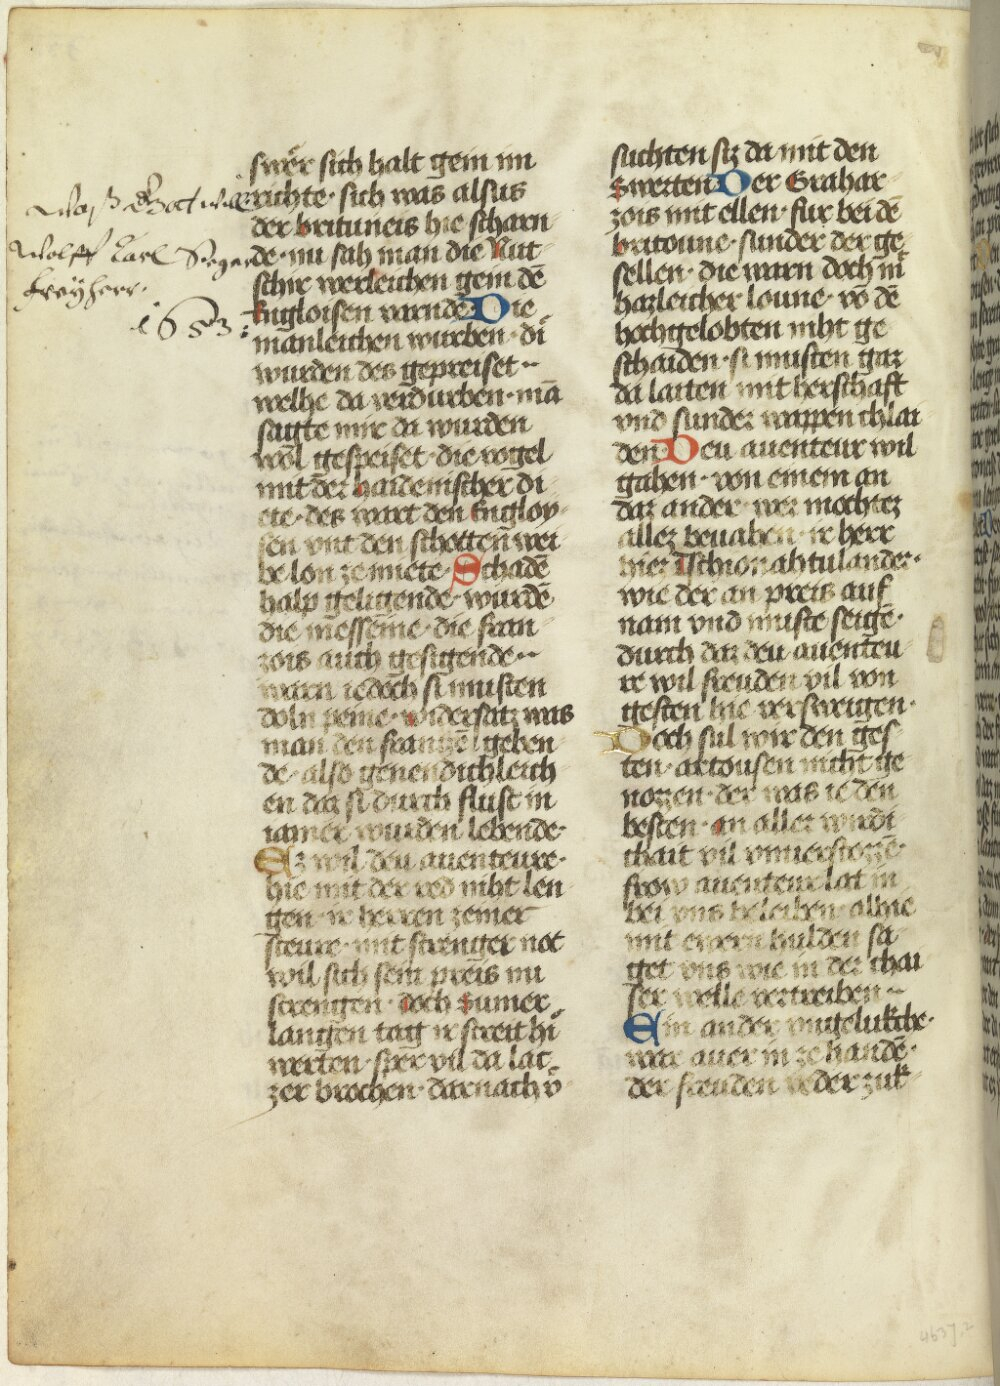 Waß Gott will
Wolff Carl
freyherr.
1653:
swer sich halt gein im
richte · sich was alsus
der brituneis hie scharn
de · nu sah man die Nut
schir werleichen gein dē
Engloisen varnde · Die
manleichen wurben · di
wurden des gepreiset ··
welhe da verdurben · mā
sagte mir da wurden
wol gespeiset · die vogel
mit der haidenischer di
ete · des wart den Engloy
sen vnt den schotten wei
be lon ze miete · Schadē
halp geligende · wurdē
die messenie · die fran
zois auch gesigende ··
warn iedoch si musten
doln peine · widersatz was
man den franzē geben
de · also genendichleich
en daz si durch flust in
iamer wurden lebende ·
Ez wil deu auenteure ·
hie mit der red niht len
gen · ir herren zeiner
steure · mit strenger not
wil sich sein preis nu
strengen · doch sumer
langen tag ir streit hi
werten · sper vil da lac
zer brochen · darnach v̄
suchten siz da mit den
swerten Der Grahar
zois mit ellen · fur bei dē
britoune · sunder der ge
sellen · die warn doch ni
hazleicher loune · vō dē
hochgelobten niht ge
schaiden · si musten gaz
da laiten mit herschaft
vnd sunder wappen chlai
den · Deu auenteur wil
gahen · von einem an
daz ander · wer mochtez
allez beuahen · ir herr
hiez Tschionahtulander ·
wie der an preis auf
nam vnd muste seigē ·
durch daz deu auenteu
re wil freuden vil von
gesten hie versweigen ·
Doch sul wir den ges
ten · artousen nicht ge
nozzen · der was ie den
besten · an aller wirdi
chait vil vnuerstozzē ·
frow auenteur lat in
bei vns beleiben · alhie
mit ewern hulden sa
get vns wie in der chai
ser welle vertreiben ··
Ein ander vngelukche ·
war auer in ze handē ·
der freuden weder zuk